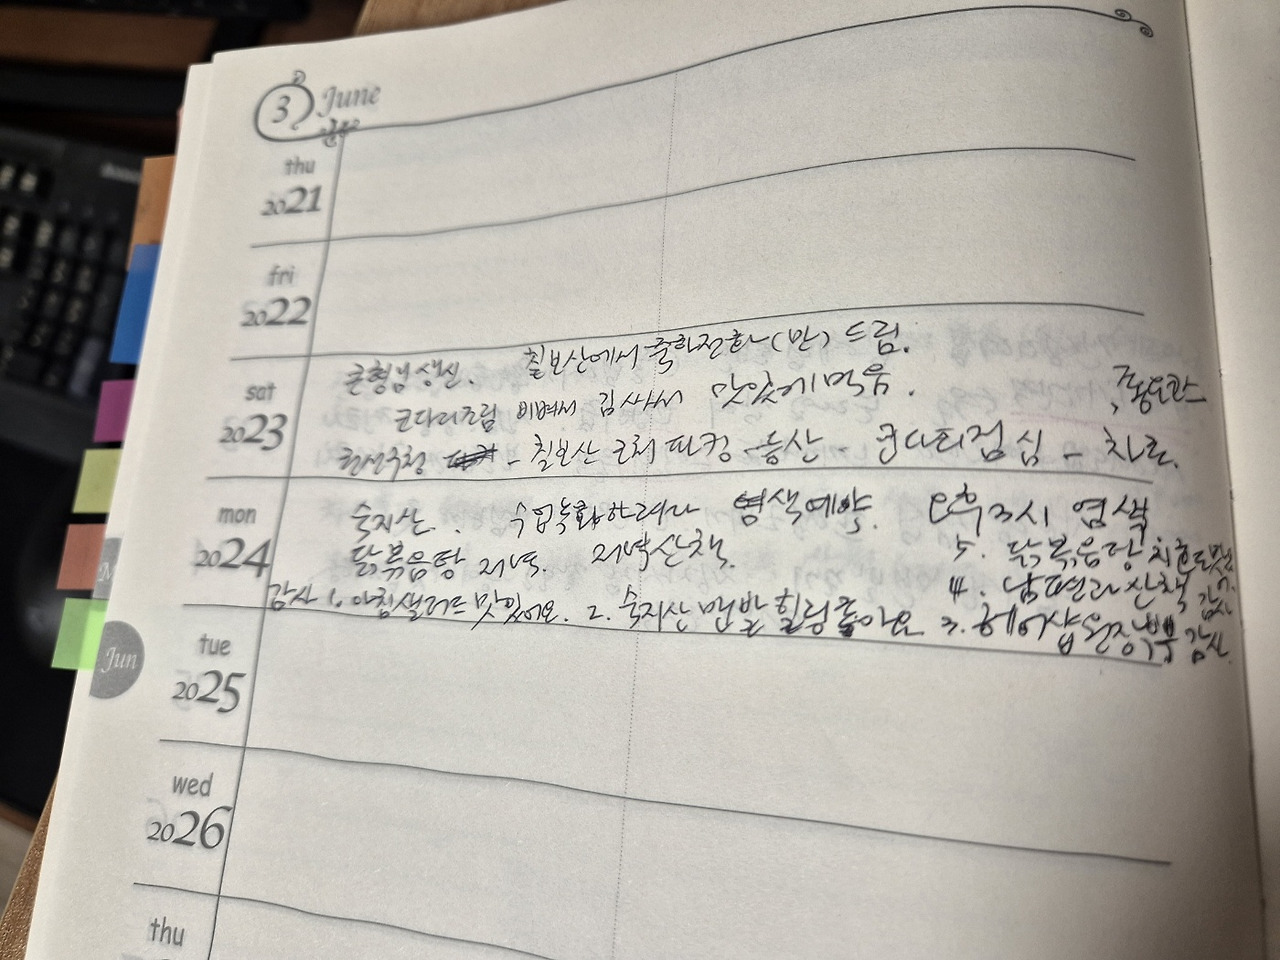 3 June
thu
2021
fri
2022
sat
2023
큰형님 생신. 칠보산에서 축하전화(반) 드림.
코다리조림 비벼서 김 싸서 맛있게 먹음.
칠보산 근처 파킹 - 등산 - 점심 -
mon
2024
숙지산. 수업녹화하려다 염색예약. 오후 3시 염색
닭볶음탕 저녁. 저녁산책.
5. 닭볶음탕
4. 남편과 산책 감사
감사 1. 아침샐러드 맛있어요. 2. 숙지산 맨발 힐링 좋아요 3. 헤어샵 원장 감사.
tue
2025
Jun
wed
2026
thu